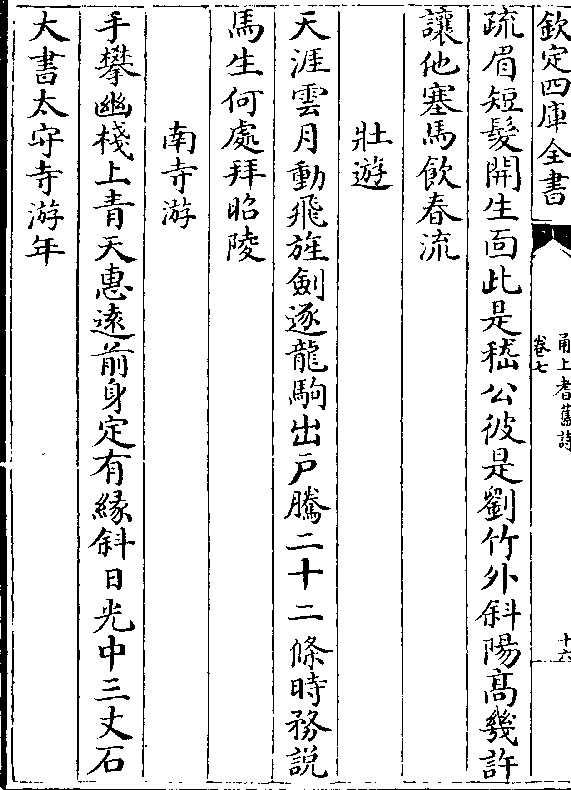 欽定四庫全書
甬上耆舊詩
卷七
十六
疏眉短髮開生面此是嵇公彼是劉竹外斜陽高幾許
讓他塞馬飲春流
壯遊
天涯雲月動飛旌劍逐龍駒出戶騰二十二條時務說
馬生何處拜昭陵
南寺游
手攀幽棧上青天惠遠前身定有緣斜日光中三丈石
大書太守寺游年